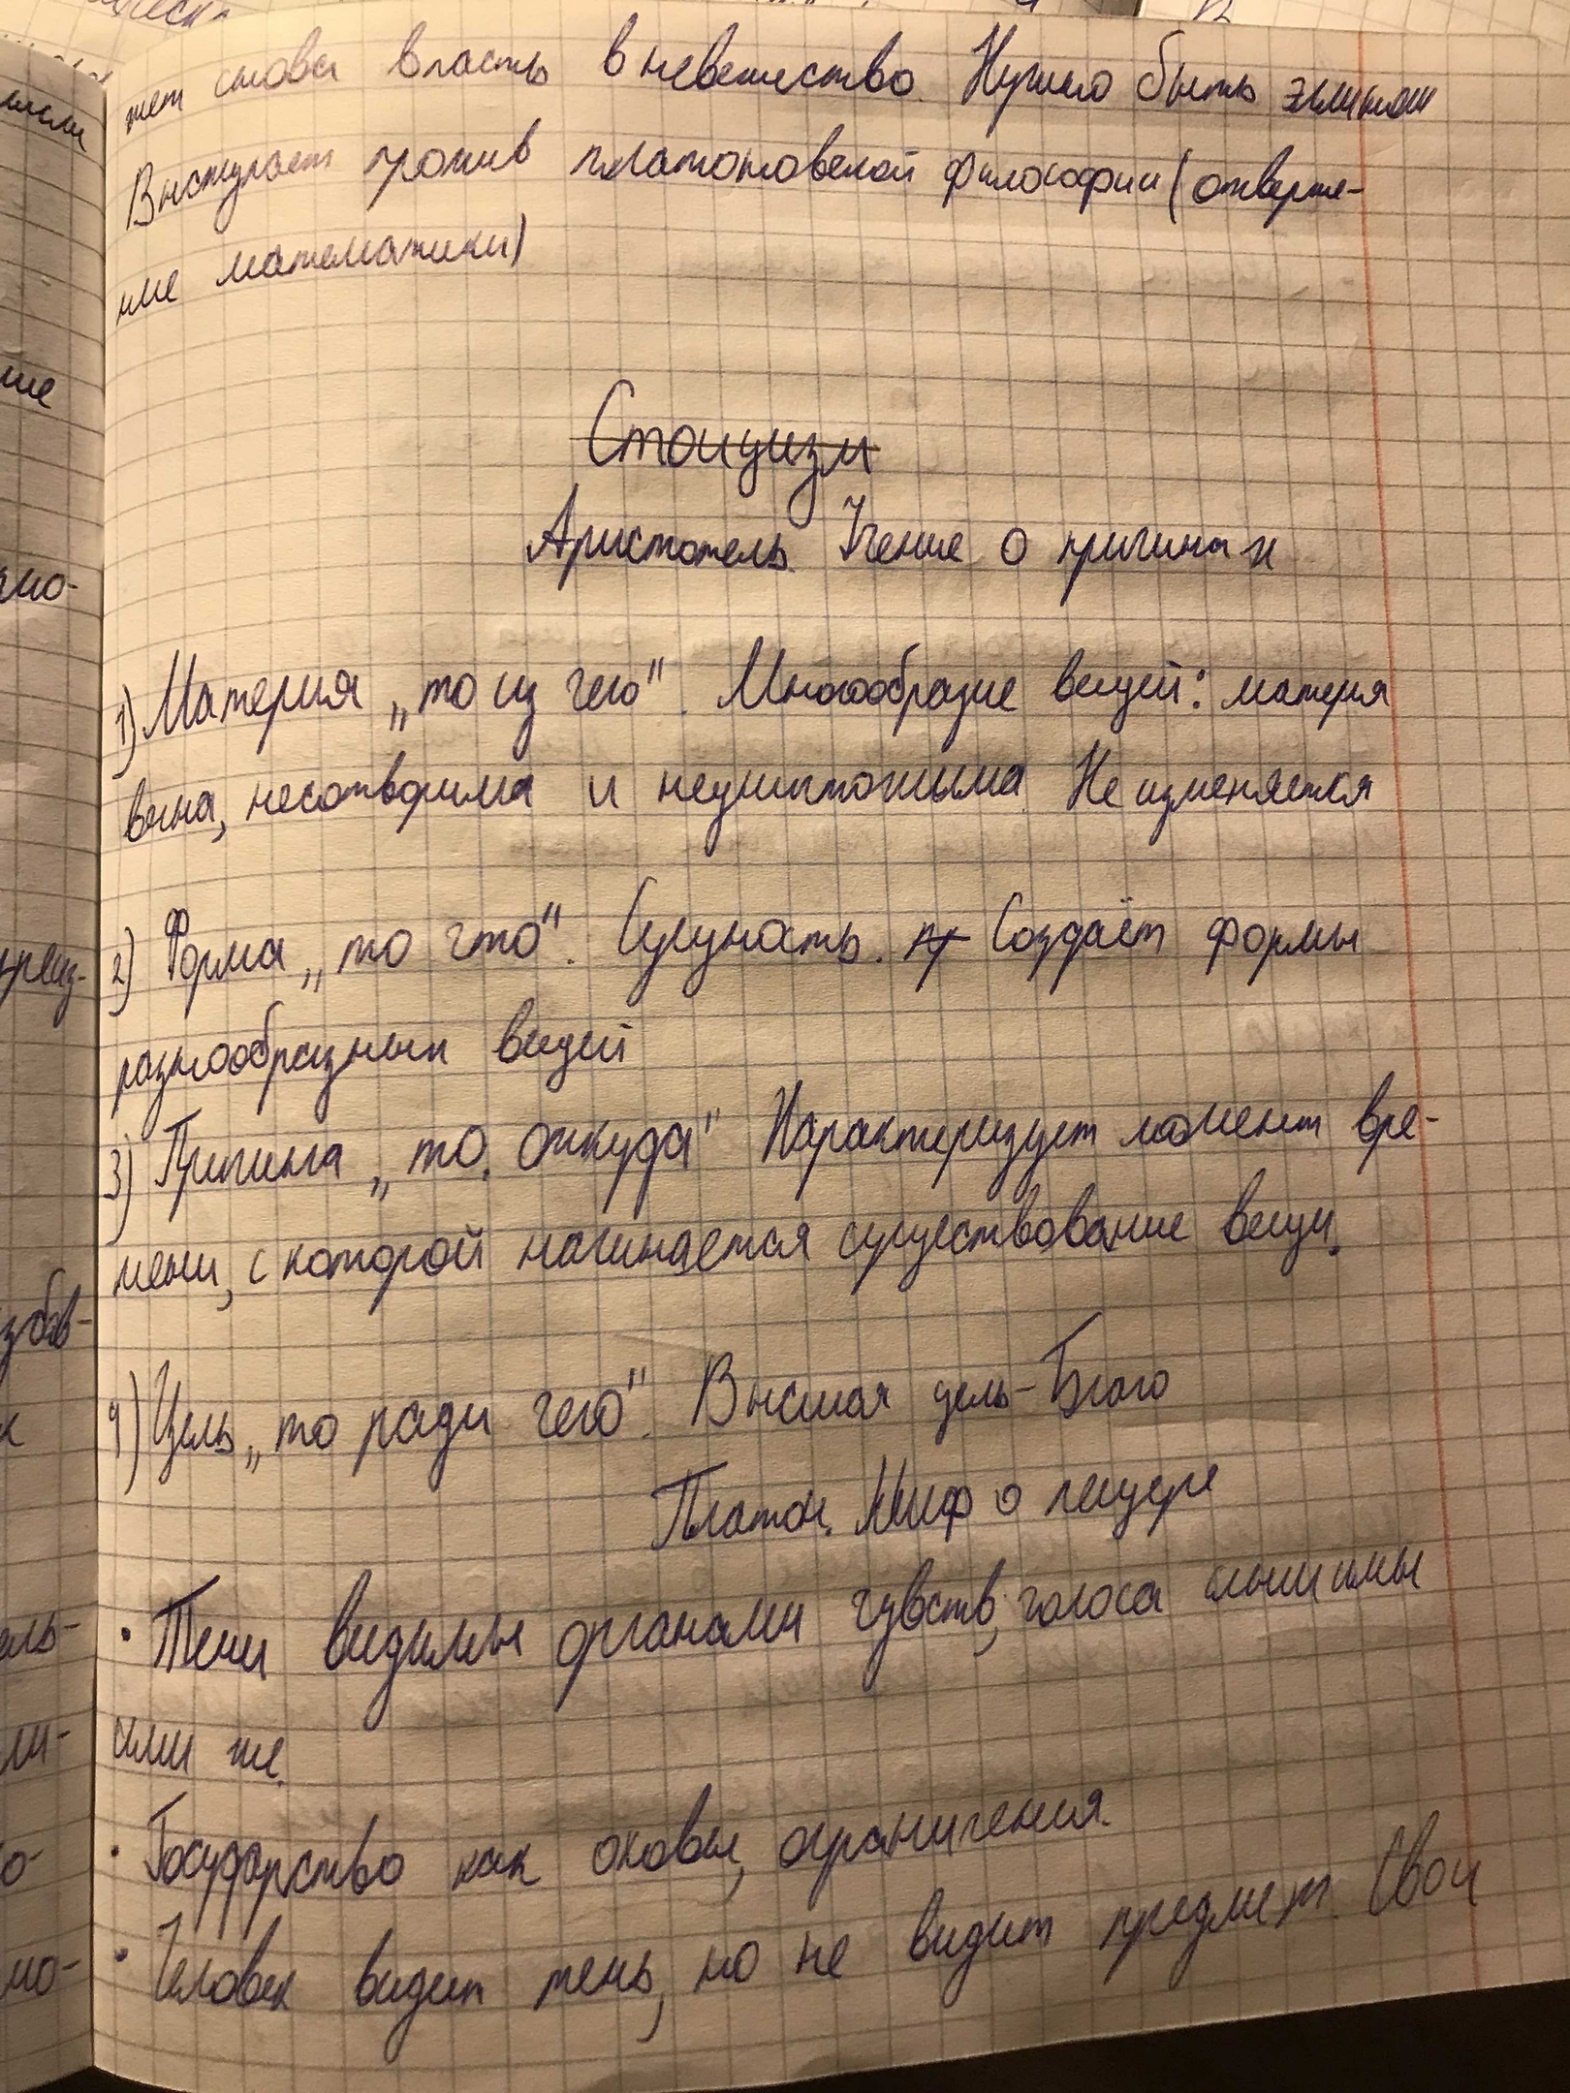 жет снова впасть в невежество. Нужно быть
Выступает против платоновской философии (отверже-
ние математики)
Стоицизм
Аристотель. Учение о причинах
1) Материя „то из чего". Многообразие вещей: материя
вечна, несотворима и неуничтожима. Не изменяется
2) Форма „то что". Сущность. Создаёт формы
разнообразных вещей
3) Причина „то, откуда" Характеризует момент вре-
мени, с которой начинается существование вещи.
4) Цель „то ради чего". Высшая цель - Благо
Платон. Миф о пещере
• Тени видимы органами чувств, голоса слышимы
ими же.
• Государство как оковы, ограничения.
• Человек видит тень, но не видит предмет. Свои